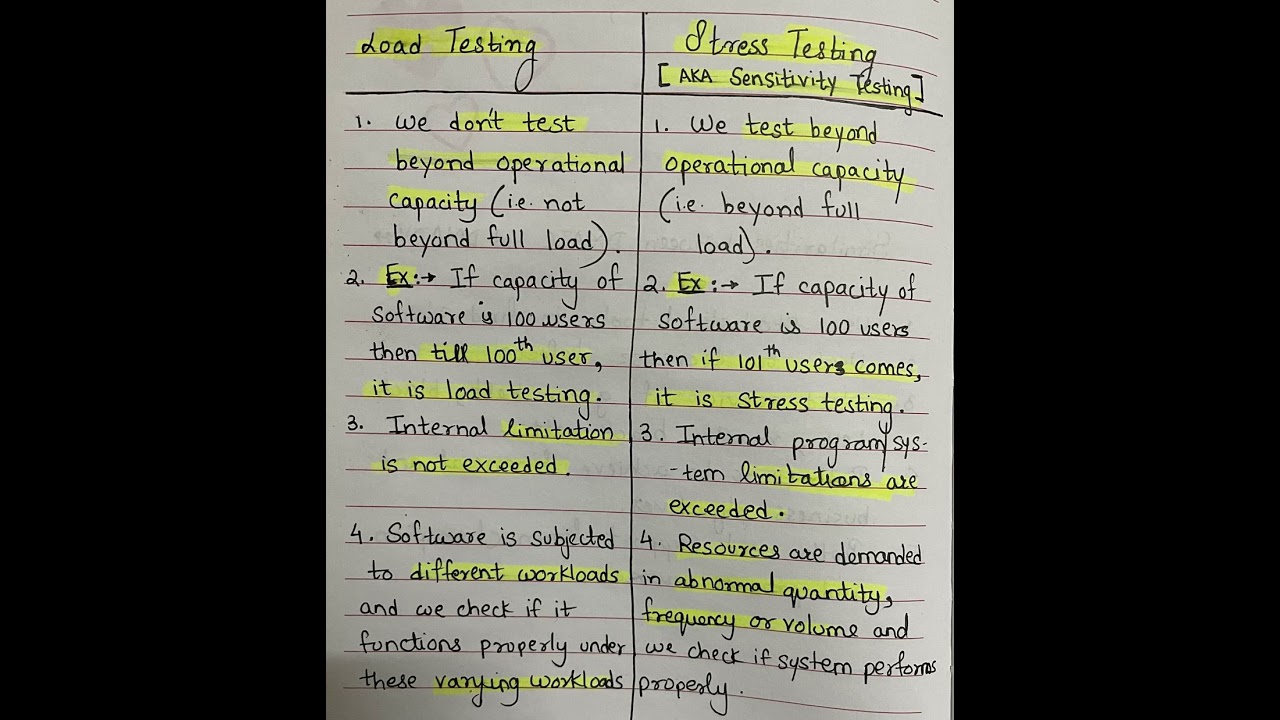 Load Testing
1. We don't test
beyond operational
capacity (i.e. not
beyond full load).
2. Ex:→ If capacity of
software is 100 users
then till 100th user,
it is load testing.
3. Internal limitation
is not exceeded.
4. Software is subjected
to different workloads
and we check if it
functions properly under
these varying workloads
Stress Testing
[AKA Sensitivity Testing]
1. We test beyond
operational capacity
(i.e. beyond full
load).
2. Ex:→ If capacity of
software is 100 users
then if 101th users comes,
it is stress testing.
3. Internal program/sys-
-tem limitations are
exceeded.
4. Resources are demanded
in abnormal quantity,
frequency or volume and
we check if system performs
properly.